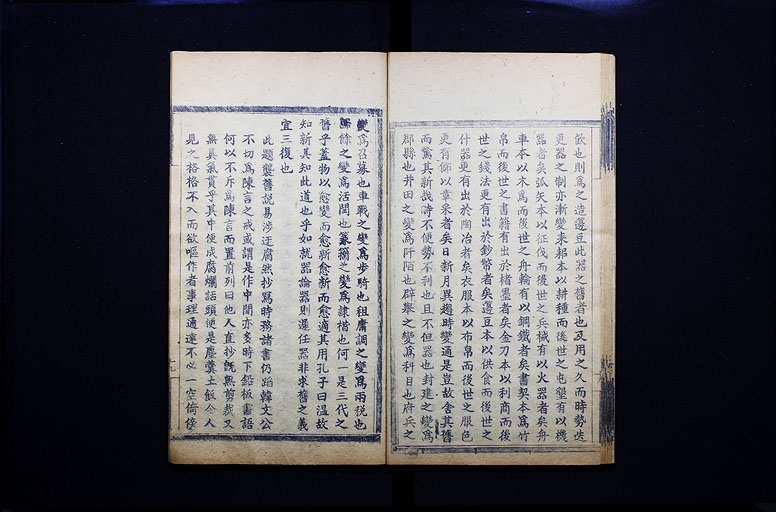 飲也則爲之造邊豆此器之舊者也及用之久而時勢迭
更器之制亦漸變耒耜本以耕種而後世之屯墾有以機
器者矣弧矢本以征伐而後世之兵械有以火器者矣舟
車本以木爲而後世之舟輪有以鋼鐵者矣書契本爲竹
帛而後世之書籍有出於楮墨者矣金刀本以利商而後
世之錢法更有出於鈔幣者矣邊豆本以供食而後世之
什器更有出於陶冶者矣衣服本以布帛而後世之服色
更有飾以章采者矣日新月異趨時變通是豈故舍其舊
而驚其新哉詩不便勢不利也且不但器也封建之變爲
郡縣也井田之變爲阡陌也辟舉之變爲科目也府兵之
變爲召募也車戰之變爲步騎也租庸調之變爲兩税也
歸餘之變爲活閏也篆籀之變爲隸楷也何一是三代之
舊乎蓋物以愈變而愈新愈新而愈適其用孔子曰温故
知新其知此道也乎如就器論器則遲任器非求舊之義
宜三復也
此題襲舊説易涉迂腐然抄寫時務諸書仍蹈韓文公
不切爲陳言之戒或謂是作中間亦多時下鉛板書語
何以不斥爲陳言而置前列曰他人直抄既無剪裁又
無真氣貫乎其中便成腐爛話頭便是塵羹土飯令人
見之格格不入而欲嘔作者事理通達不必一空倚傍